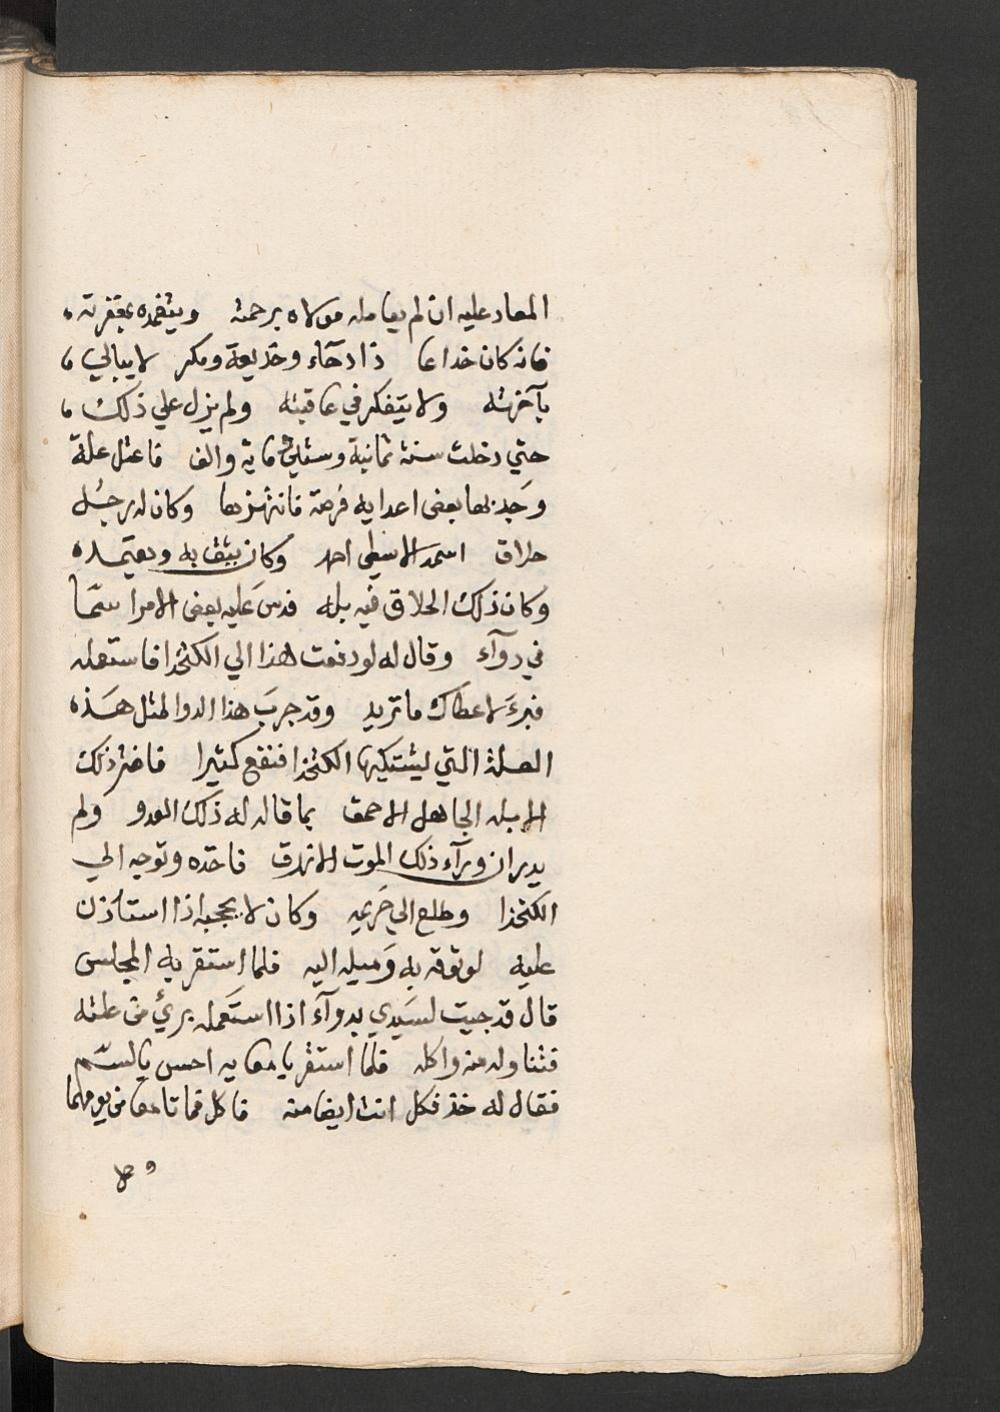 المعاد عليه ان لم يعامله مولاه برحمته ويتغمده بمغفرته،
فانه كان خداعا ذا دحاء وخديعة ومكر لا يبالي،
بآخرته ولا يتفكر في عاقبته ولم يزل علي ذلك،
حتي دخلت سنة ثمانية وستين ماية والف فاعتل علة
وجد بها بعض اعدايه فرصة فانتهزها وكان له رجل
حلاق اسمه الاسطي احمد وكان يثق به ويعتمده
وكان ذلك الحلاق فيه بله فدس عليه بعض الامرا سمّا
في دوآء وقال له لو دفعت هذا الي الكتخدا فاستعمله
فبرءَ لاعطاك ما تريد وقد جربَ هذا الدوا لمثل هَذه
العلة التي يشتكيها الكتخدا فنفع كثيرا فاغتر ذلك
الابله الجاهل الاحمق بما قاله له ذلك العدو ولم
يدر ان ورآء ذلك الموت الازرق فاخذه وتوجه الي
الكتخدا وطلع الي حَريمه وكان لا يحجبه اذا استأذن
عليه لوثوقه به وَميله اليه فلما استقر به المجلس
قال قد جيت لسَيدي بدوآء اذا استَعمله بريُ من علته
فتناوله منه واكله فلما استقر بامعايه احس بالسّم
فقال له خذ فكل انت ايضا منه فاكل فماتا معا من يومهما
ولا